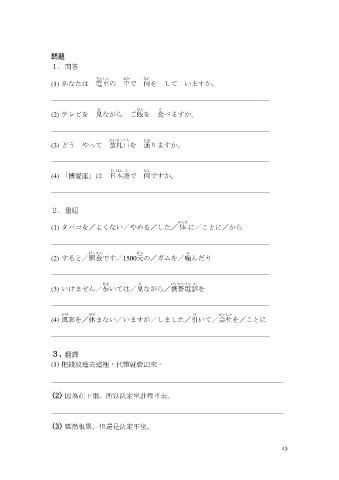 問題
１．問答
(1) あなたは 電車の 中で 何を して いますか。
(2) テレビを 見ながら ご飯を 食べますか。
(3) どう やって 改札口を 通りますか。
(4) 「博愛座」は 日本語で 何ですか。
２．重組
(1) タバコを／よくない／やめる／した／体に／ことに／から
(2) すると／罰金です／1500元の／ガムを／噛んだり
(3) いけません／歩いては／見ながら／携帯電話を
(4) 風邪を／休まない／いますが／しました／引いて／会社を／ことに
３．翻譯
(1) 把錢放進去這裡，代幣就會出來。
(2) 因為在下雨，所以決定坐計程車去。
(3) 雖然很累，但還是決定不坐。
45